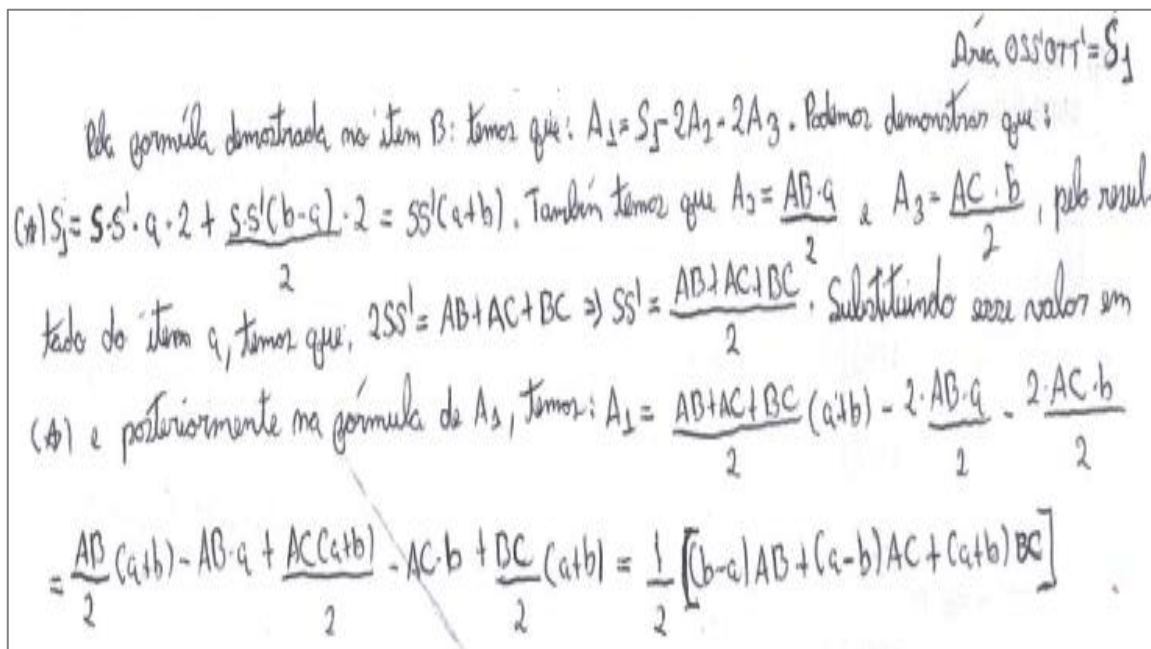 Área OSS'OTT' = S₁
Pela formúla demostrada no item B: temos que: A₁ = S₁ - 2A₂ - 2A₃. Podemos demonstrar que:
(*) S₁ = S·S'·a·2 + S·S'(b-a)/2 ·2 = SS'(a+b). Também temos que A₂ = AB·a/2 e A₃ = AC·b/2, pelo resul-
tado do item a, temos que, 2SS' = AB+AC+BC ⇒ SS' = (AB+AC+BC)/2. Substituindo esse valor em
(*) e posteriormente na fórmula de A₁, temos: A₁ = (AB+AC+BC)/2 (a+b) - 2·AB·a/2 - 2·AC·b/2
= AB/2 (a+b) - AB·a + AC(a+b)/2 - AC·b + BC/2 (a+b) = 1/2 [(b-a)AB + (a-b)AC + (a+b)BC]